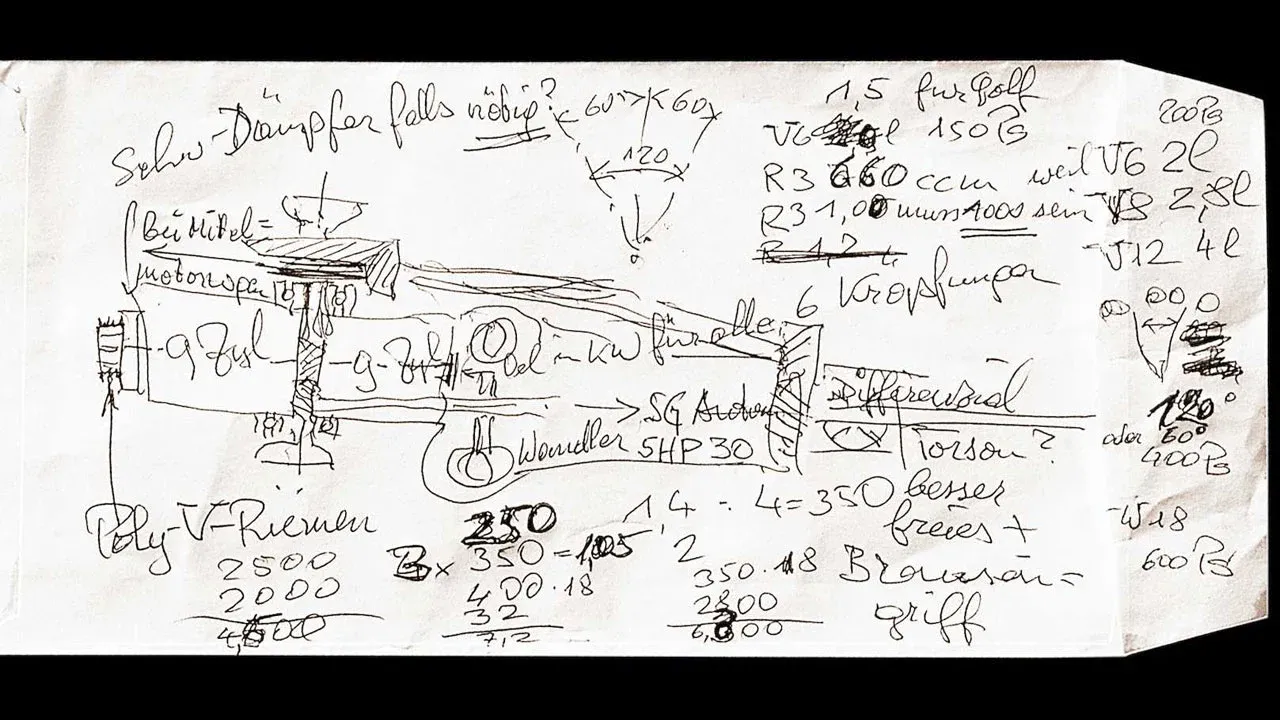 Schw-Dämpfer falls nötig?
60° 60
120
1,5 für Golf
V6 l 150 PS
R3 660 ccm weil V6 2l
R3 1,00 muss 1000 sein V8 2,8l
R 1,2
V12 4l
200 PS
Kröpfungen
Bei Mittel=
motorwagen
9 Zyl
9-Zyl
Oel in KW für alle 6
→ SG
5HP30
Wandler
Differenzial
Torson?
120°
oder 60°
400 PS
W18
600 PS
besser
freies +
Bremsein=
griff
Poly-V-Riemen
2500
2000
250
350 = 1,05
400 · 18
32
7,2
1,4 : 4 = 350
2
350 · 18
2800